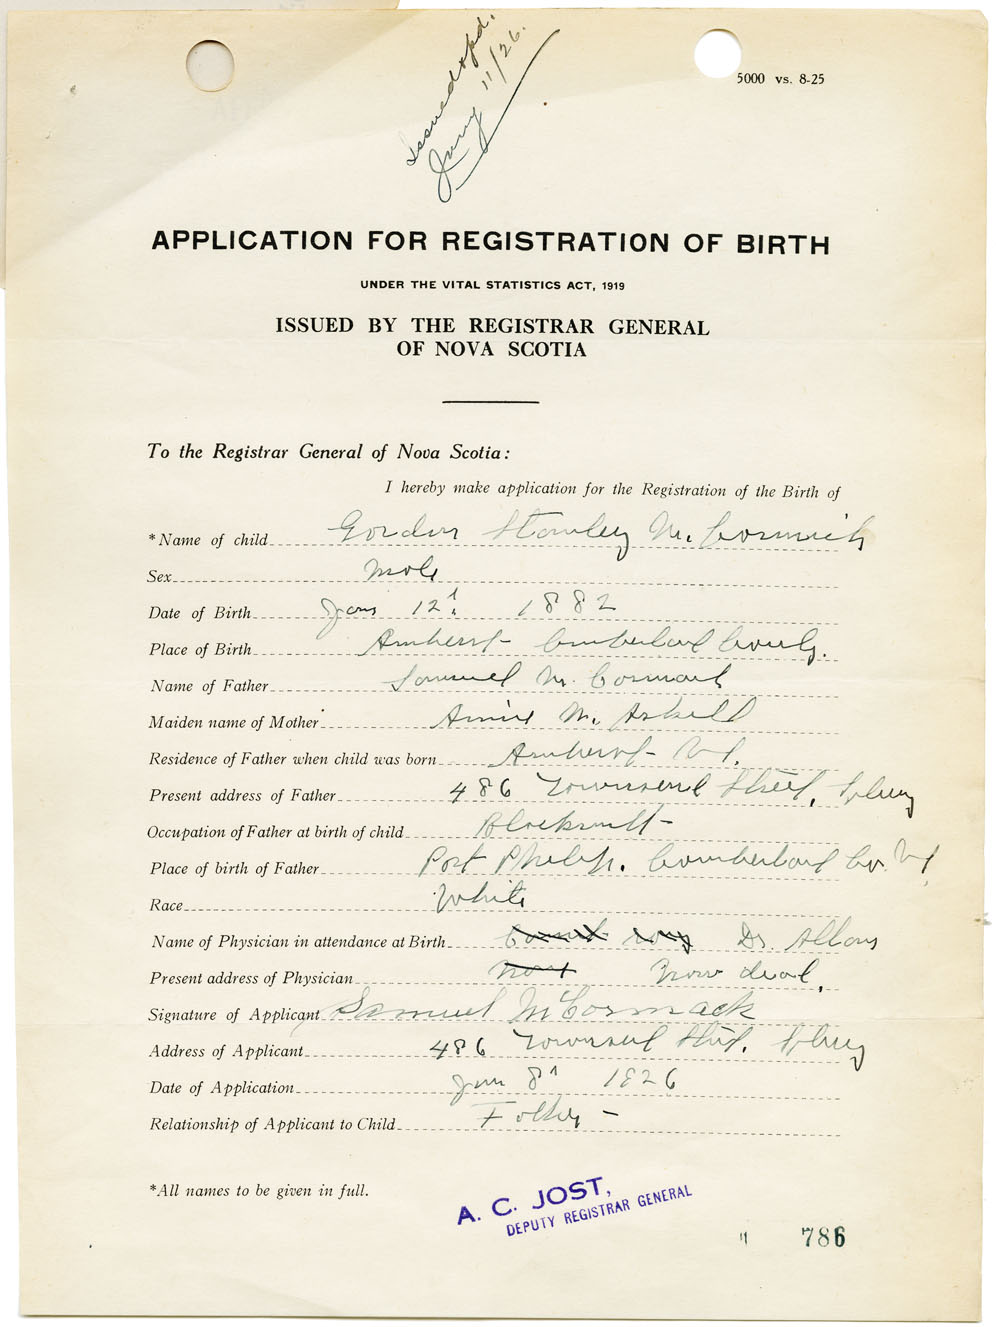 Issued & pd.
Jany 11/26.
5000 vs. 8-25
APPLICATION FOR REGISTRATION OF BIRTH
UNDER THE VITAL STATISTICS ACT, 1919
ISSUED BY THE REGISTRAR GENERAL
OF NOVA SCOTIA
To the Registrar General of Nova Scotia:
I hereby make application for the Registration of the Birth of
*Name of child Gordon Stanley McCormick
Sex Male
Date of Birth Jany 12th 1882
Place of Birth Amherst Cumberland County.
Name of Father Samuel McCormack
Maiden name of Mother Annie McAskill
Residence of Father when child was born Amherst N.S.
Present address of Father 486 Townsend Street, Sydney
Occupation of Father at birth of child Blacksmith
Place of birth of Father Port Philip. Cumberland Co. N.S.
Race White
Name of Physician in attendance at Birth Dr. Allan
Present address of Physician Now dead.
Signature of Applicant Samuel McCormack
Address of Applicant 486 Townsend Street. Sydney
Date of Application Jan 8th 1926
Relationship of Applicant to Child Father
*All names to be given in full.
A. C. JOST,
DEPUTY REGISTRAR GENERAL
786